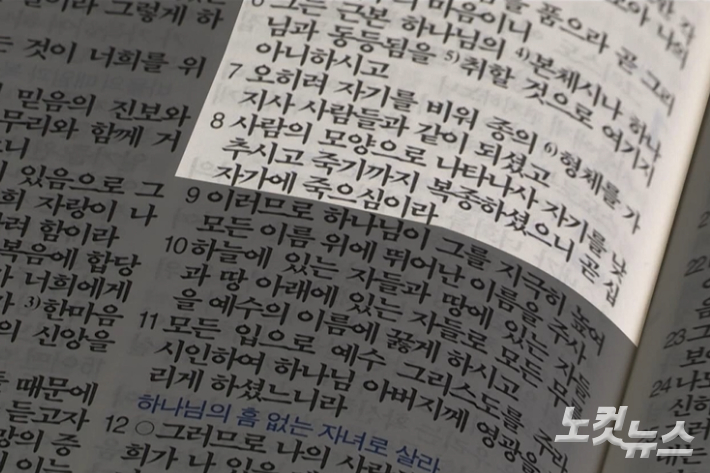 말이라 그렇게 하
는 것이 너희를 위
믿음의 진보와
무리와 함께 거
니
있음으로 그
희 자랑이 나
려 함이라
복음에 합당
너희에게
3)한마음
의 신앙을
때문에
듣고자
의 증
6 그는 근본 하나님의 4)본체시나 하나
님과 동등됨을 5)취할 것으로 여기지
아니하시고
7 오히려 자기를 비워 종의 6)형체를 가
지사 사람들과 같이 되셨고
8 사람의 모양으로 나타나사 자기를 낮
추시고 죽기까지 복종하셨으니 곧 십
자가에 죽으심이라
9 이러므로 하나님이 그를 지극히 높여
모든 이름 위에 뛰어난 이름을 주사
10 하늘에 있는 자들과 땅에 있는 자들
과 땅 아래에 있는 자들로 모든 무릎
을 예수의 이름에 꿇게 하시고
11 모든 입으로 예수 그리스도를 주라
시인하여 하나님 아버지께 영광을
리게 하셨느니라
하나님의 흠 없는 자녀로 살라
12 ○그러므로 나의 사랑
희가 나 있을
22
23 그
보
24 나
신
노컷뉴스